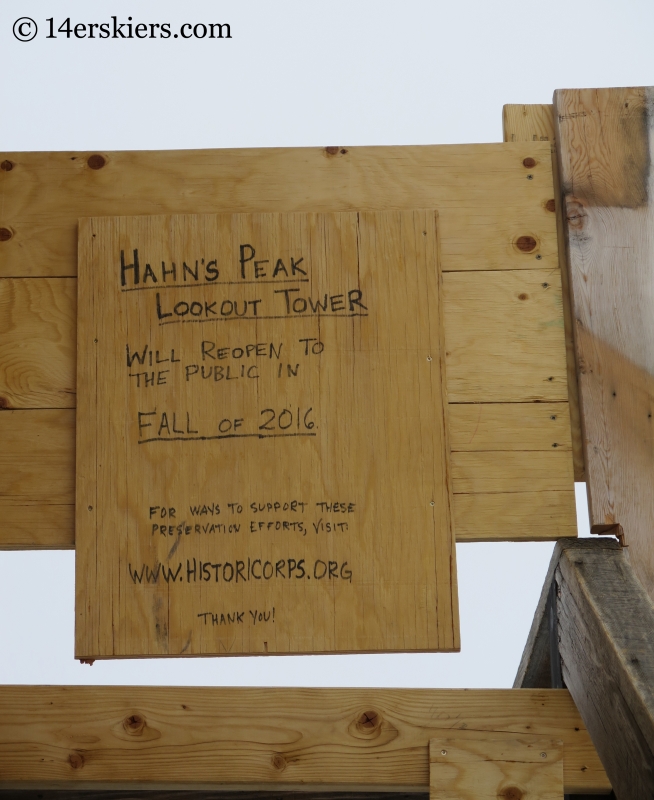 © 14erskiers.com
HAHN'S PEAK
LOOKOUT TOWER
WILL REOPEN TO
THE PUBLIC IN
FALL OF 2016.
FOR WAYS TO SUPPORT THESE
PRESERVATION EFFORTS, VISIT:
WWW.HISTORICORPS.ORG
THANK YOU!